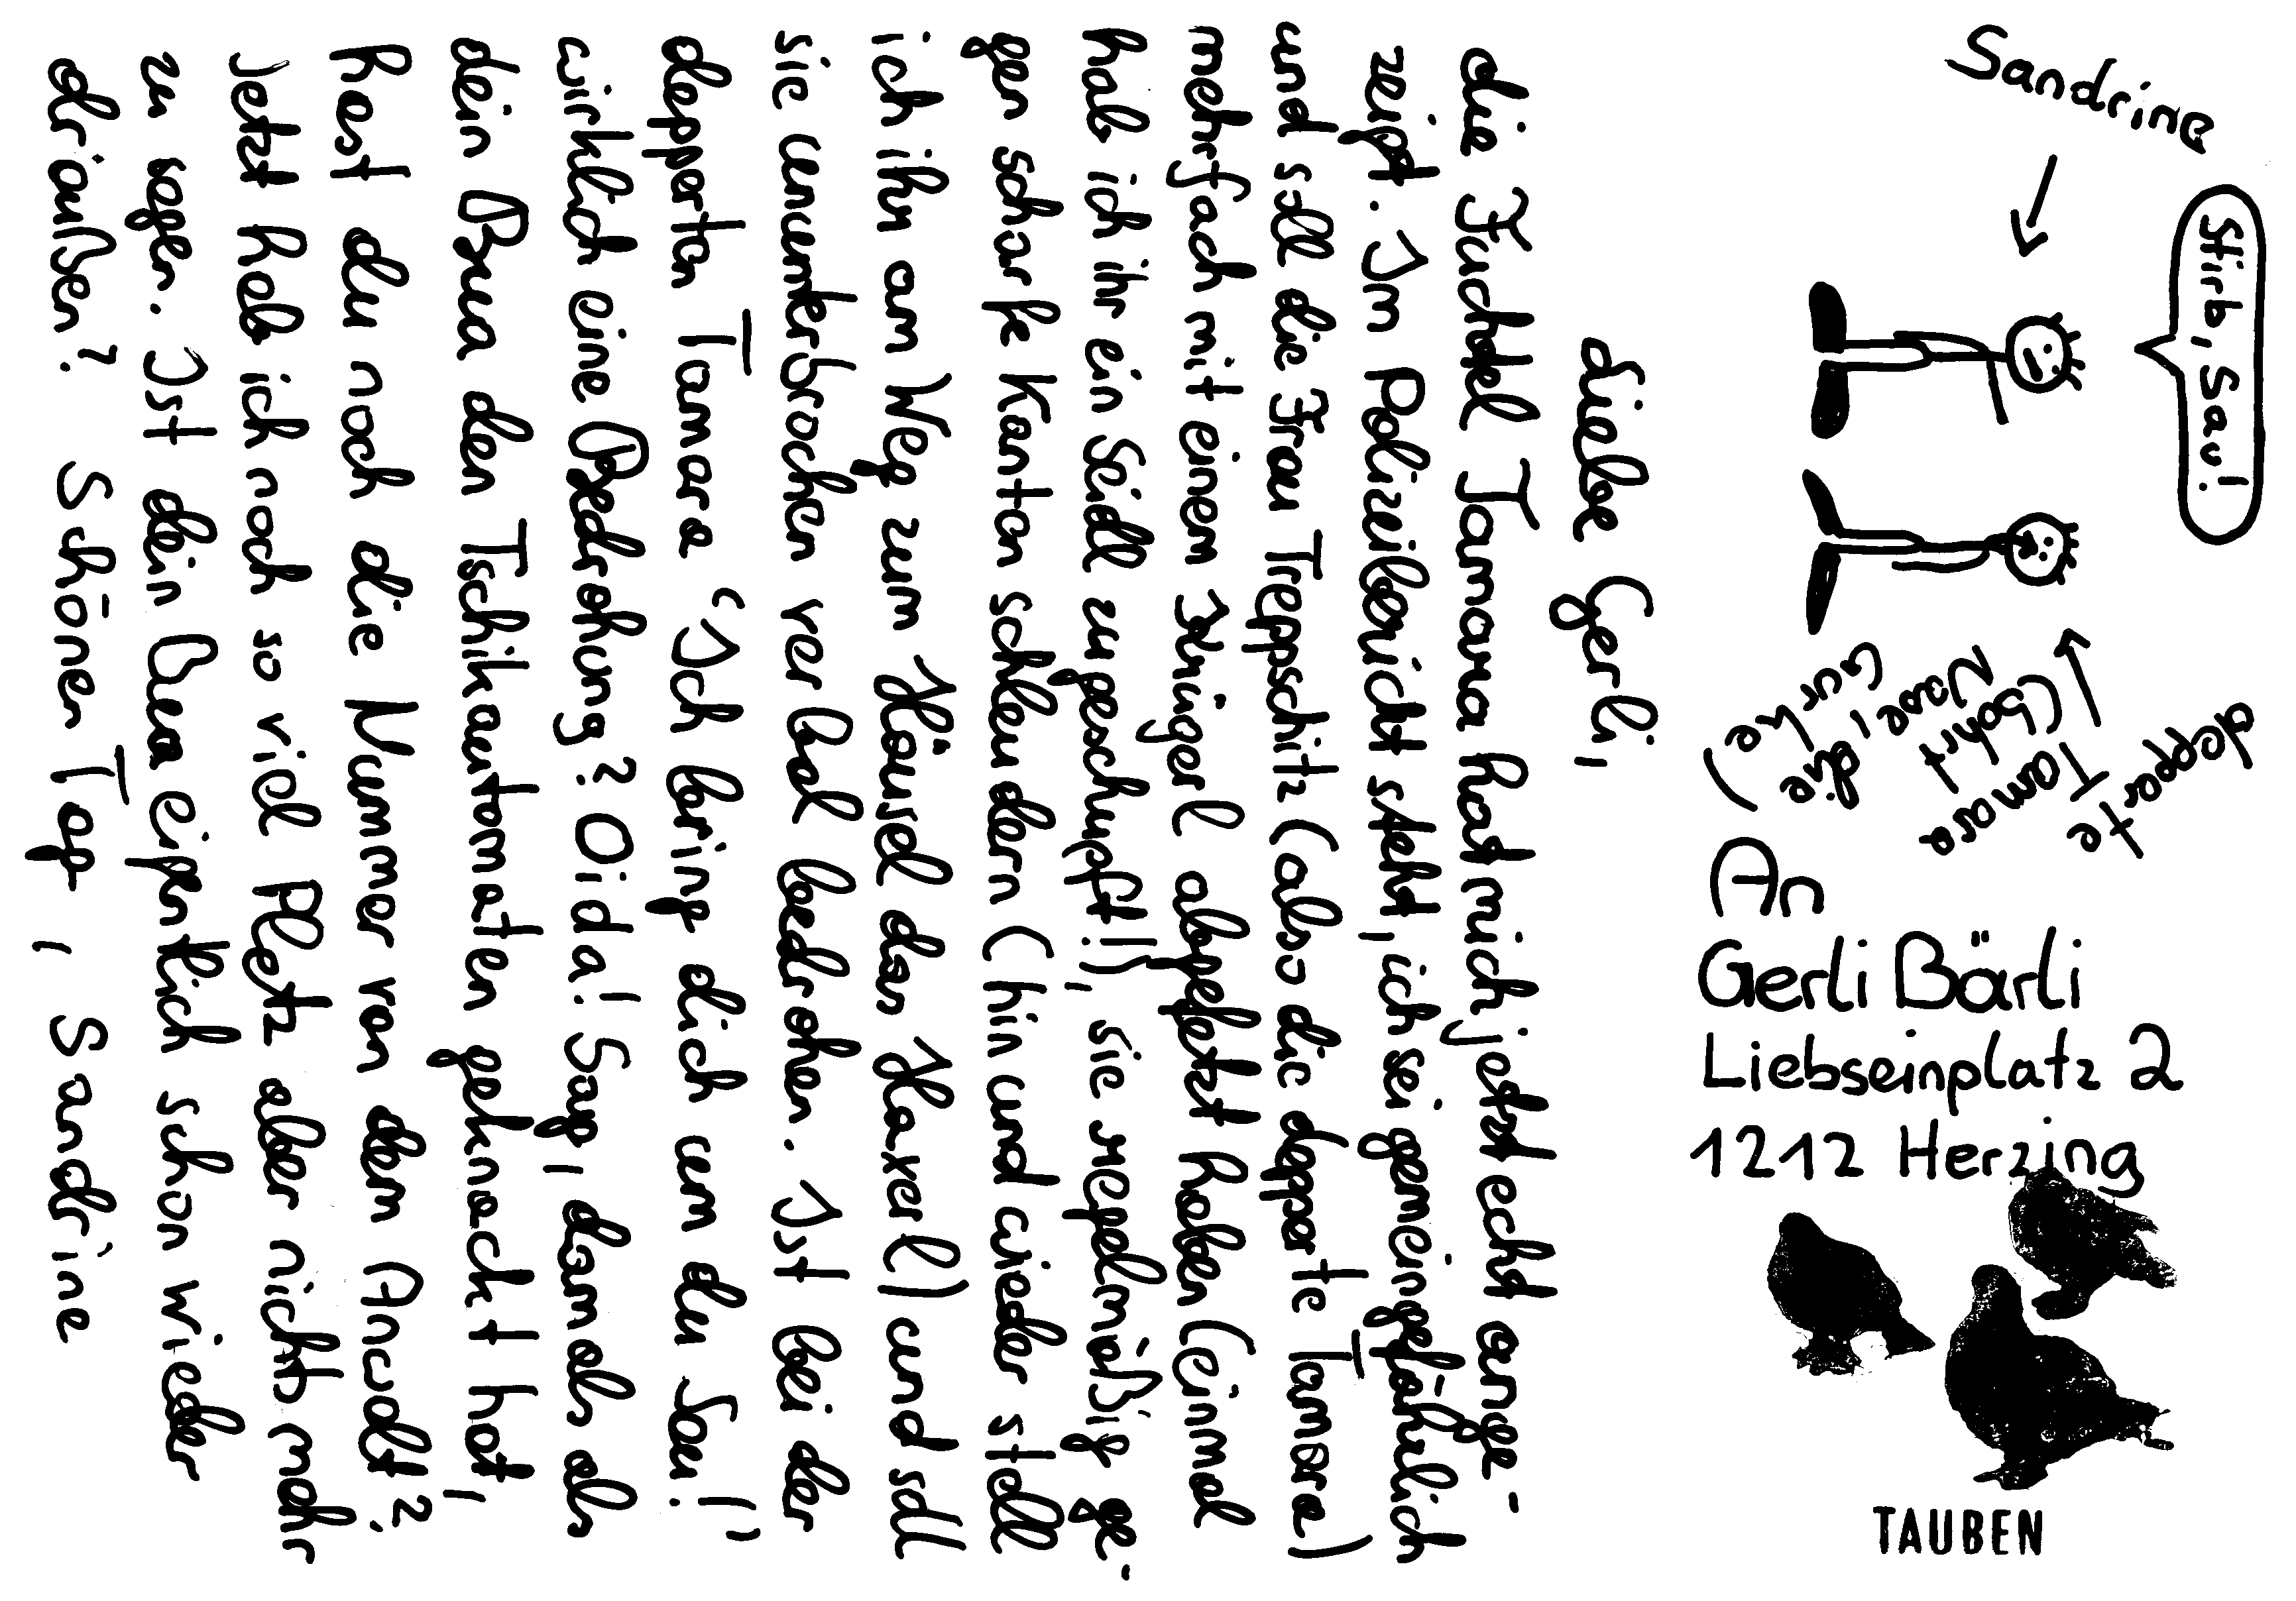 Liebe Gerli,
die Fuchtel Tamara hat mich jetzt echt ange-
zeigt. Im Polizeibericht steht, ich sei gemeingefährlich
und soll die Frau Treppschitz (also die depperte Tamara)
mehrfach mit einem Krügerl abgefetzt haben (einmal
hab ich ihr ein Seidl zugeschupft!), sie regelmäßig ge-
gen scharfe Kanten schleudern (hin und wieder stell
ich ihr am Weg zum Häusel das Haxerl) und soll
sie ununterbrochen verbal bedrohen. Ist bei der
depperten Tamara "Ich bring dich um du Sau!"
wirklich eine Bedrohung? Oida! Sag, damals als
dein Bua den Tschikautomaten geknackt hat,
hast du noch die Nummer von dem Anwalt?
Jetzt hab ich noch so viel Platz aber nichts mehr
zu sagen. Ist dein Bua eigentlich schon wieder
draußen? Schönen Tag, Sandrine
Sandrine
Stirb, Sau!
depperte
Tamara
(bohrt
Nase, die
Gurke)
An
Gerli Bärli
Liebseinplatz 2
1212 Herzing
TAUBEN